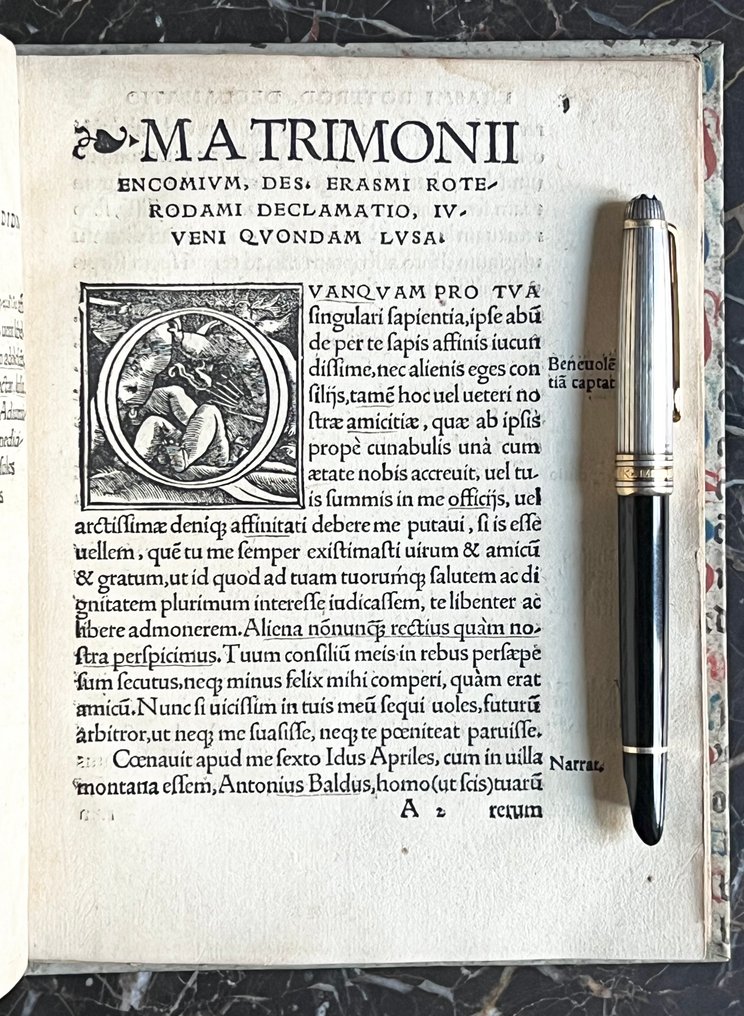 MATRIMONII
ENCOMIVM, DES. ERASMI ROTE-
RODAMI DECLAMATIO, IV-
VENI QVONDAM LVSA.
QVANQVAM PRO TVA
ſingulari ſapientia, ipſe abū
de per te ſapis affinis iucun
diſſime, nec alienis eges con
ſilijs, tamē hoc uel ueteri no
ſtræ amicitiæ, quæ ab ipſis
propè cunabulis unà cum
ætate nobis accreuit, uel tu-
is ſummis in me officijs, uel
arctiſſimæ deniqꝫ affinitati debere me putaui, ſi is eſſe
uellem, quē tu me ſemper exiſtimaſti uirum & amicū
& gratum, ut id quod ad tuam tuorumqꝫ ſalutem ac di
gnitatem plurimum intereſſe iudicaſſem, te libenter ac
libere admonerem. Aliena nōnunqꝫ rectius quàm no-
ſtra perſpicimus. Tuum conſiliū meis in rebus perſæpe
ſum ſecutus, neqꝫ minus felix mihi comperi, quàm erat
amicū. Nunc ſi uiciſſim in tuis meū ſequi uoles, futurū
arbitror, ut neqꝫ me ſuaſiſſe, neqꝫ te pœniteat paruiſſe.
Cœnauit apud me ſexto Idus Apriles, cum in uilla
montana eſſem, Antonius Baldus, homo (ut ſcis) tuarū
A 2 rerum
Beneuolē
tiā captat
Narrat.